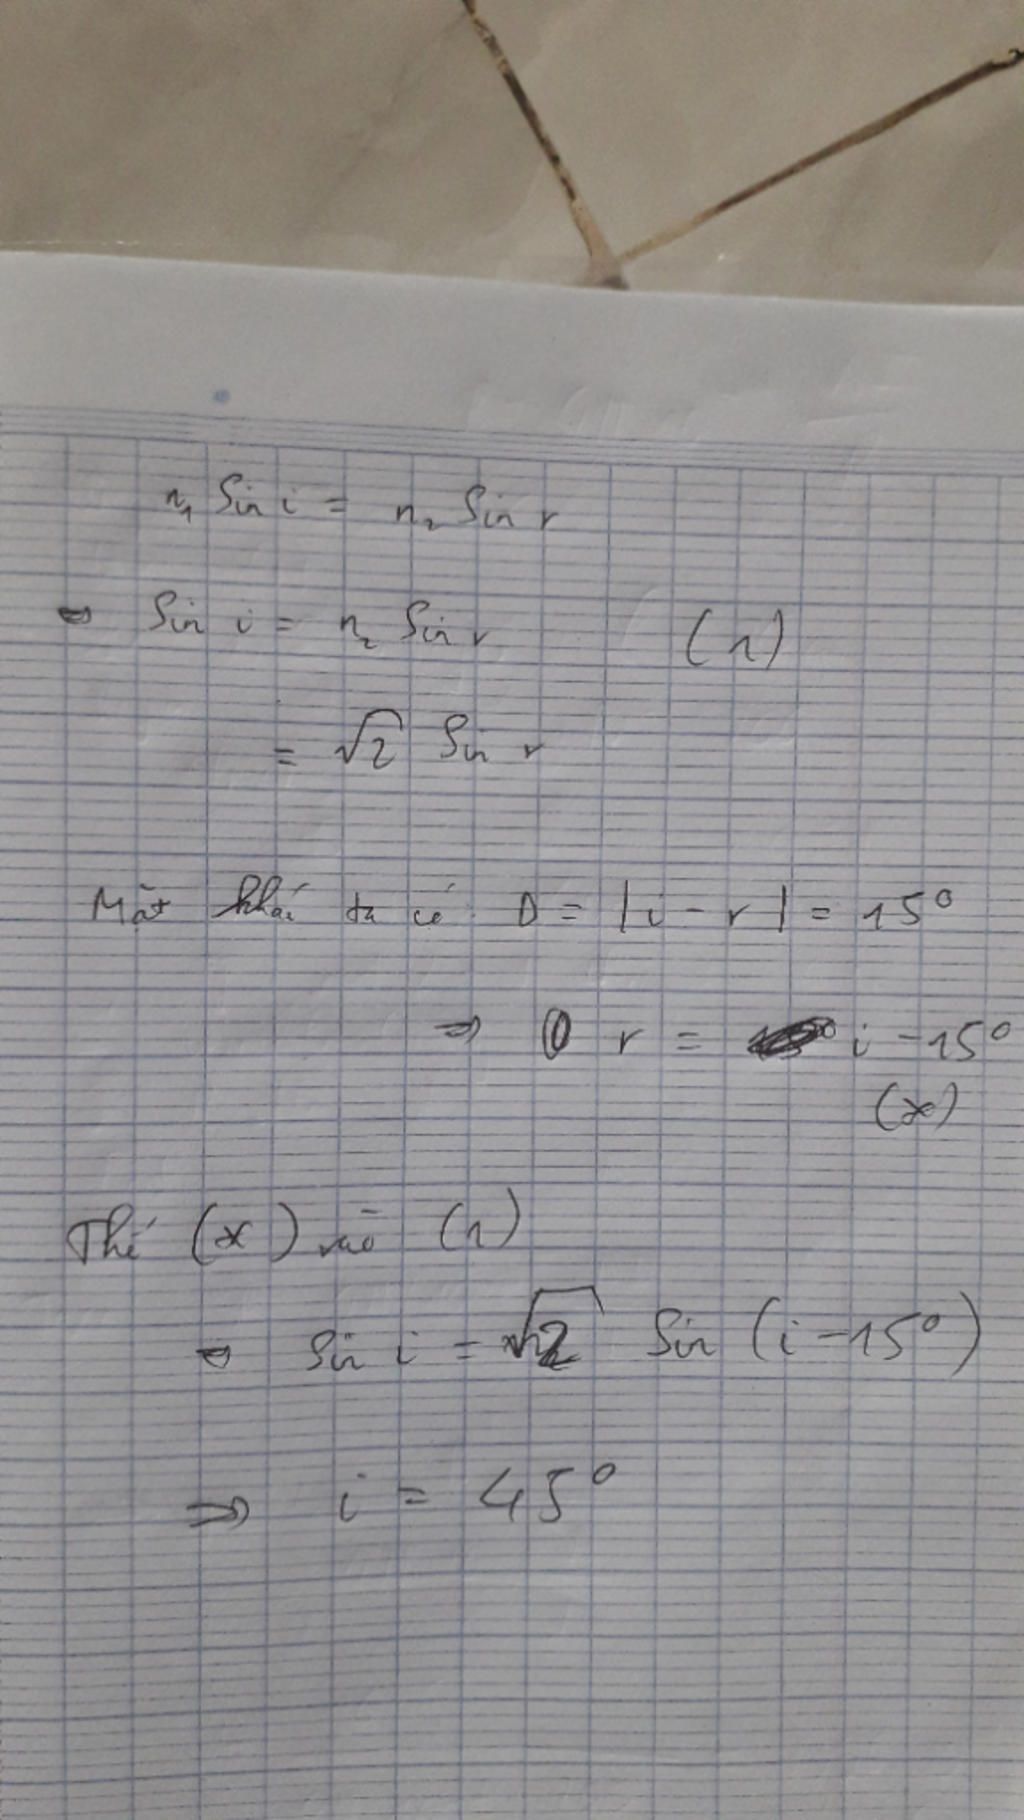 n₁ Sin i = n₂ Sin r
⇒ Sin i = n₂ Sin r (1)
= √2 Sin r
Mặt khác ta có: D = |i - r| = 15°
⇒ r = i - 15°
(*)
Thế (*) vào (1)
⇒ Sin i = √2 Sin (i - 15°)
⇒ i = 45°